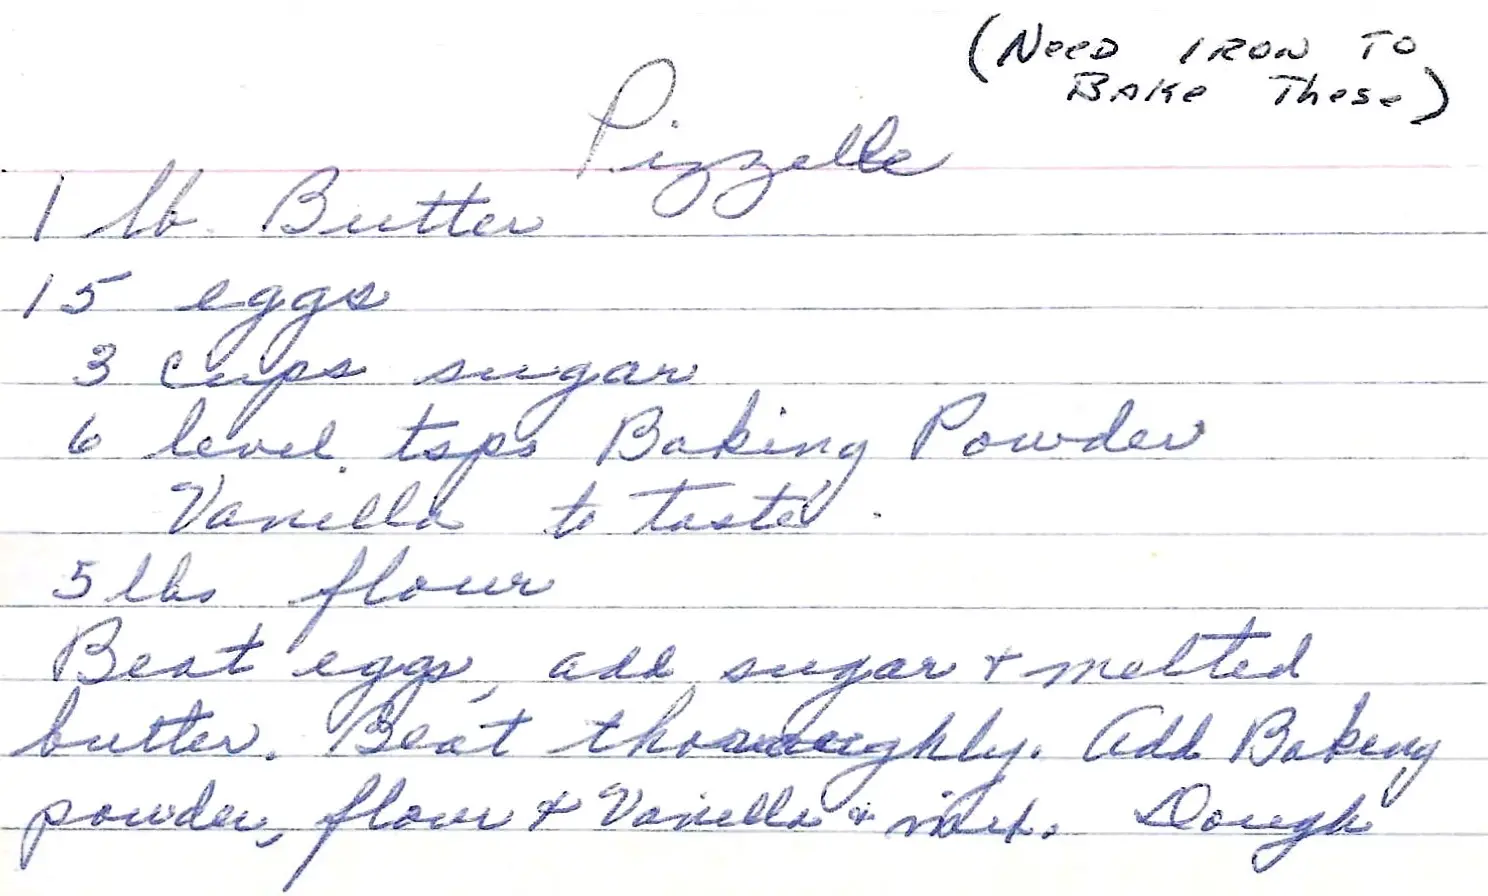 (Need Iron to
Bake These)
Pizzelle
1 lb. Butter
15 eggs
3 cups sugar
6 level tsps Baking Powder
Vanilla to taste.
5 lbs flour
Beat eggs, add sugar + melted
butter. Beat thoroughly. Add Baking
powder, flour + Vanilla + mix. Dough